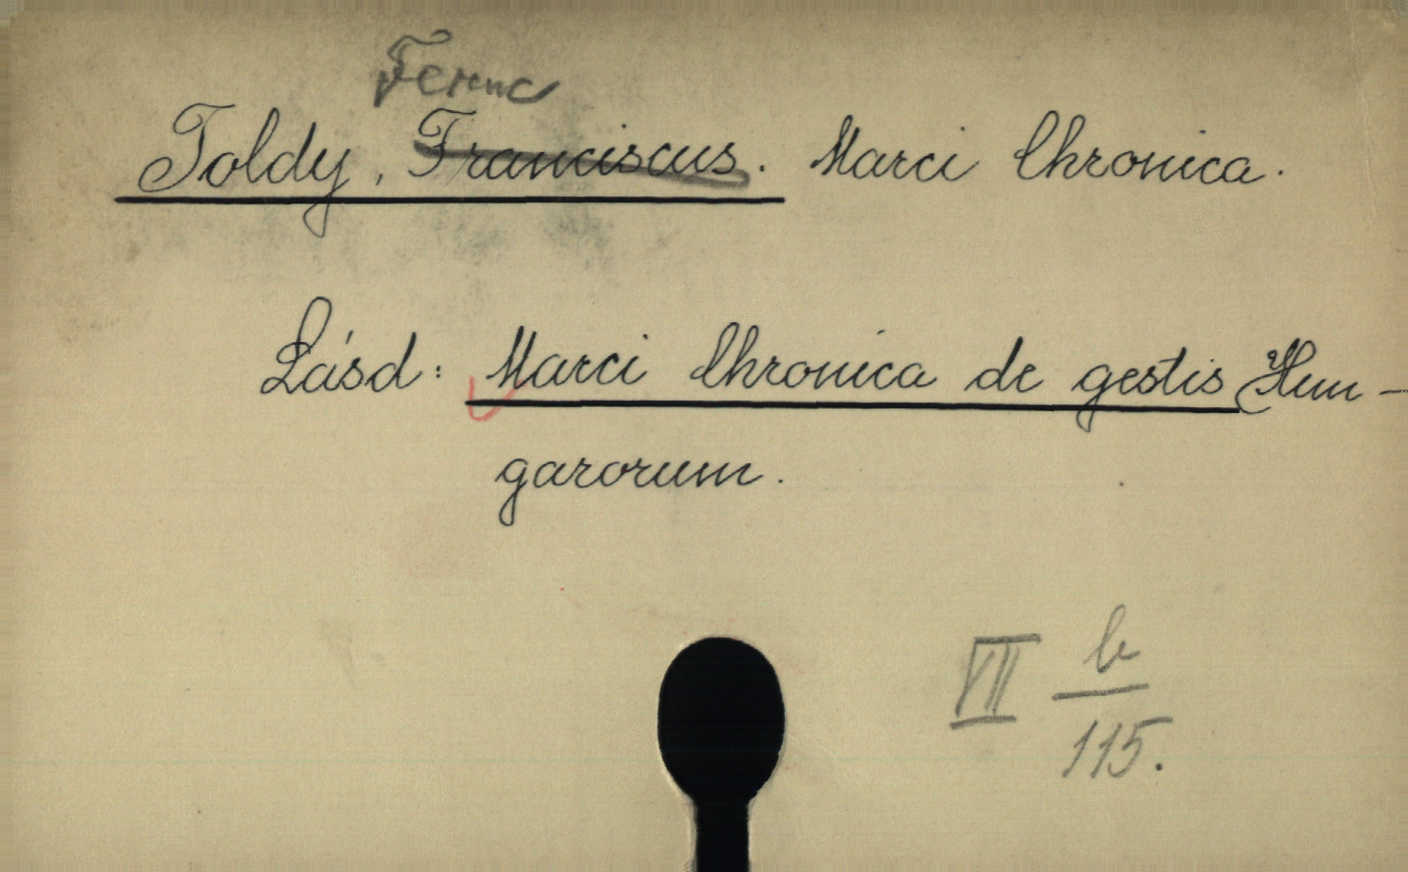 Ferenc
Toldy, Franciscus. Marci Chronica.
Lásd: Marci Chronica de gestis Hun-
garorum.
VII b
115.